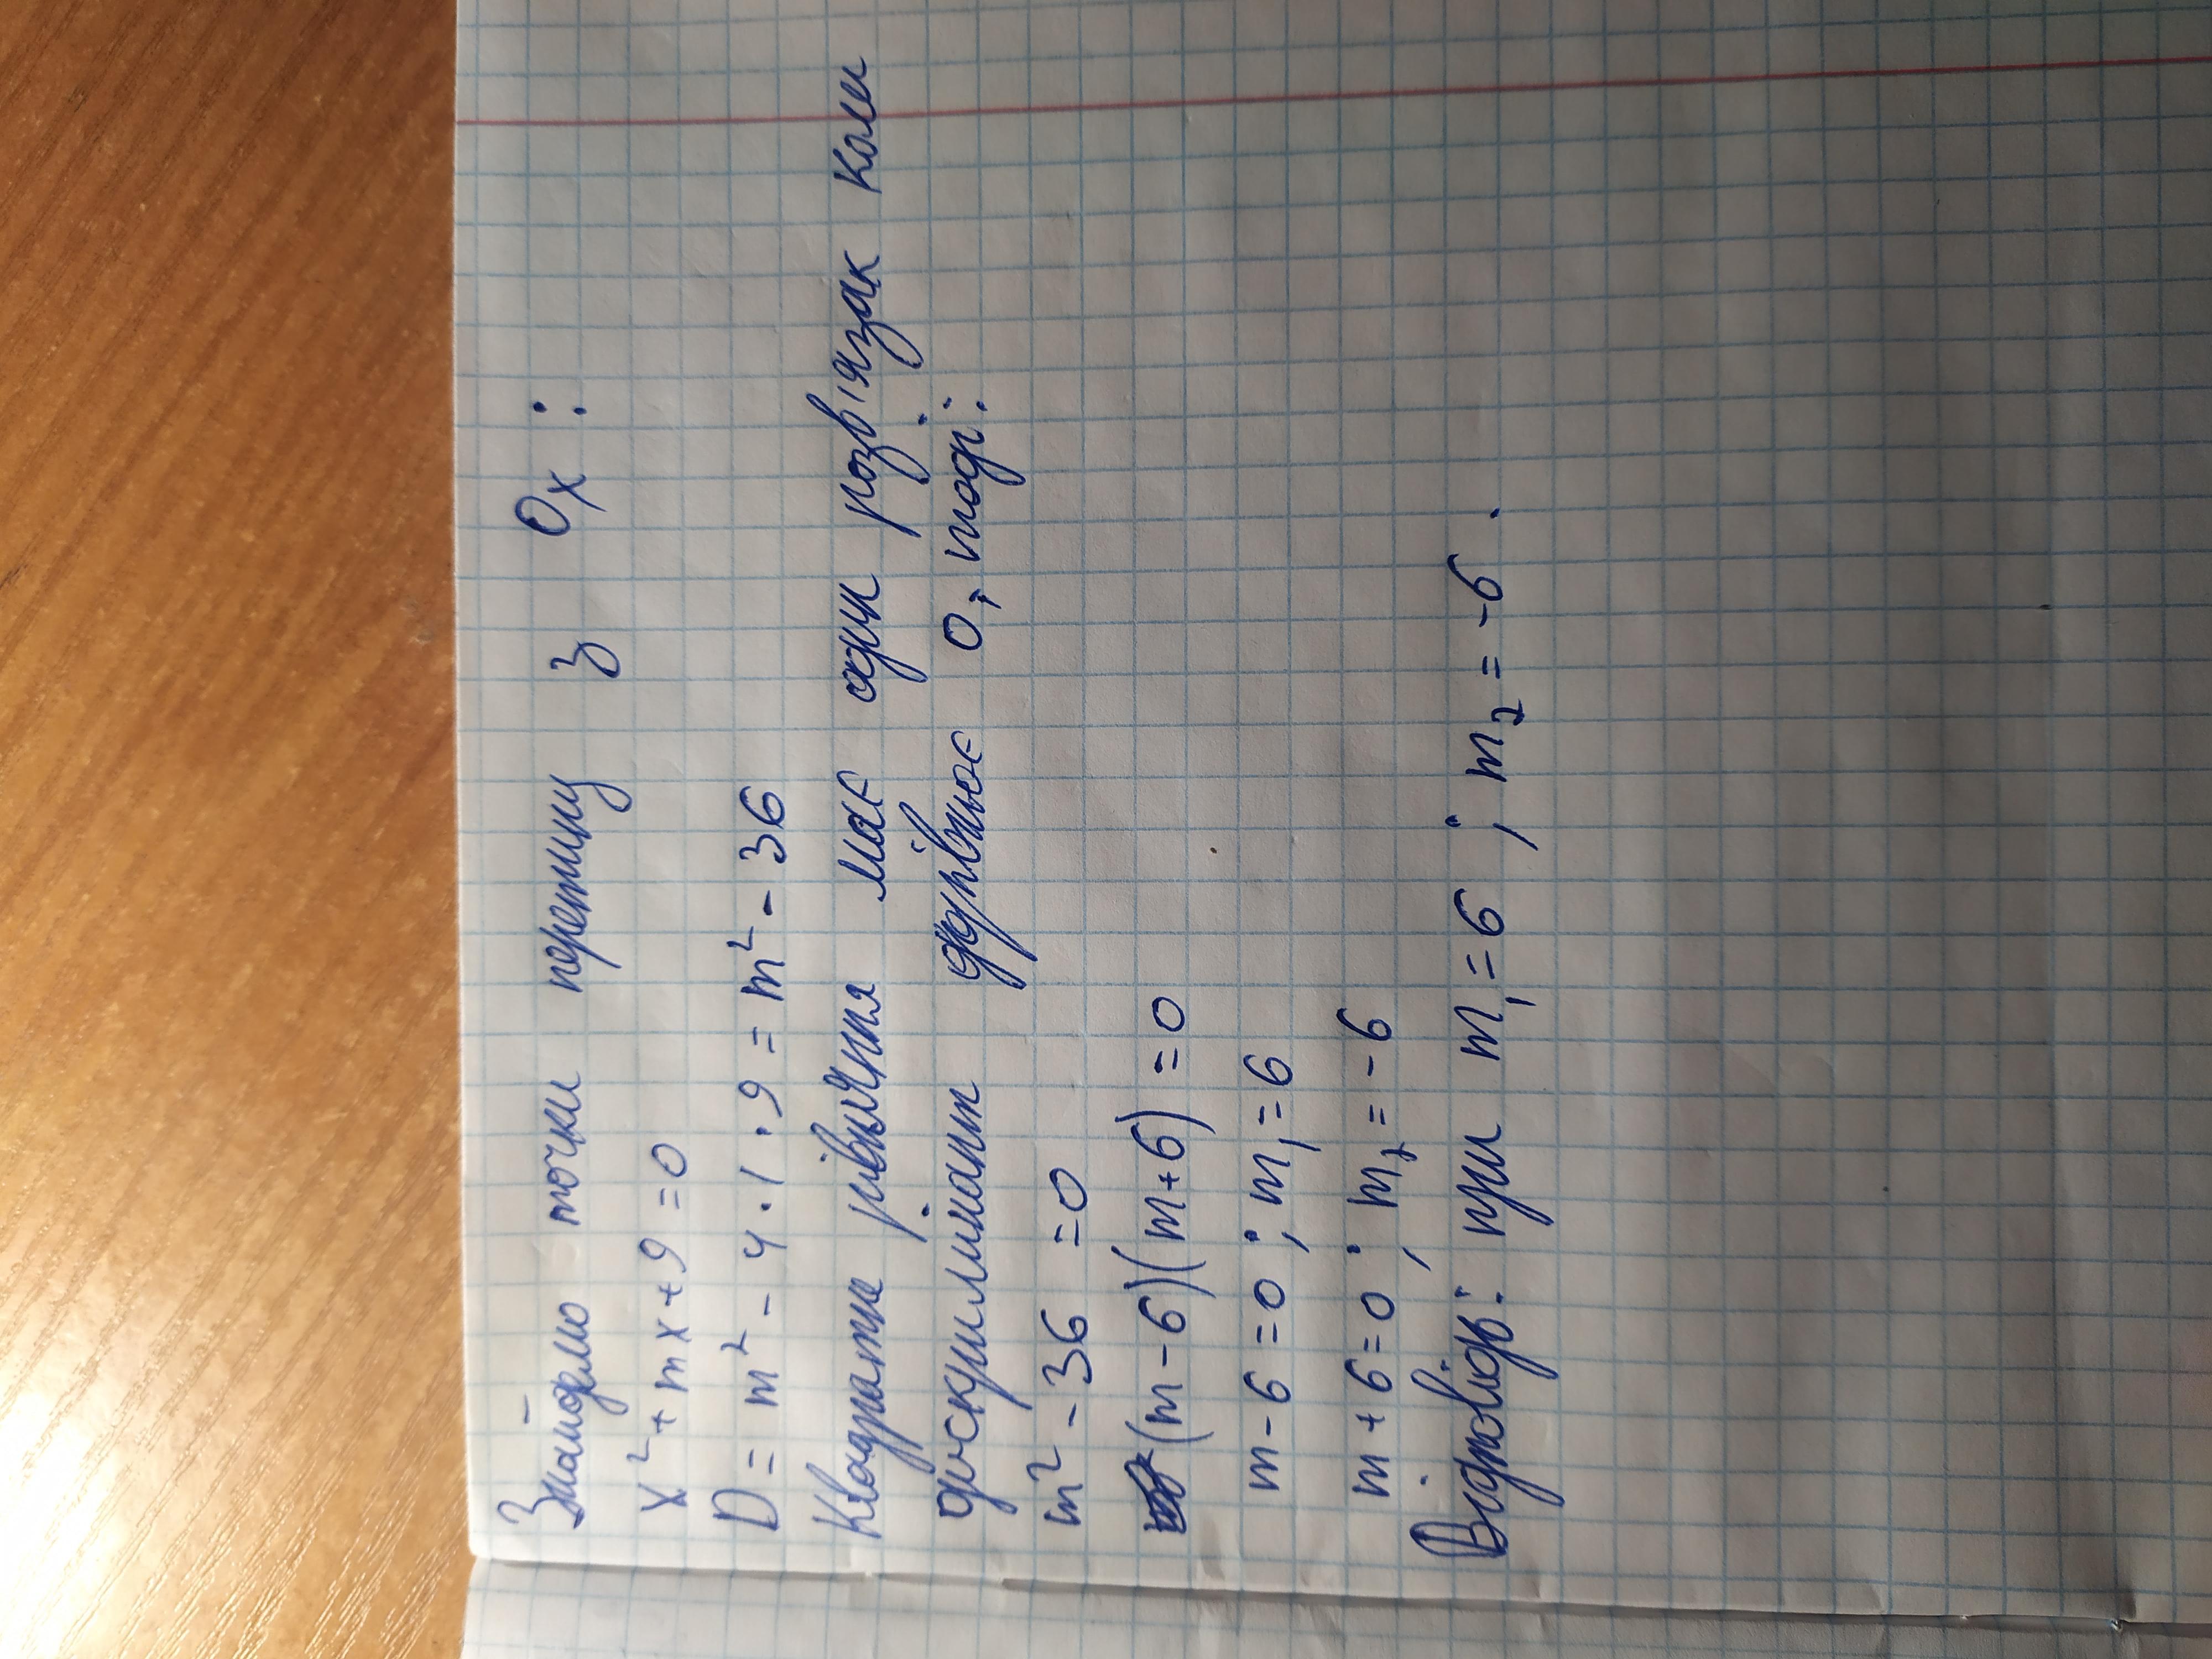 Знайдемо точки перетину з Ox:
x² + mx + 9 = 0
D = m² - 4 · 1 · 9 = m² - 36
Квадратне рівняння має один розв'язок коли
дискримінант дорівнює 0, тоді:
m² - 36 = 0
(m - 6)(m + 6) = 0
m - 6 = 0 ; m₁ = 6
m + 6 = 0 ; m₂ = -6
Відповідь: при m₁ = 6 ; m₂ = -6 .